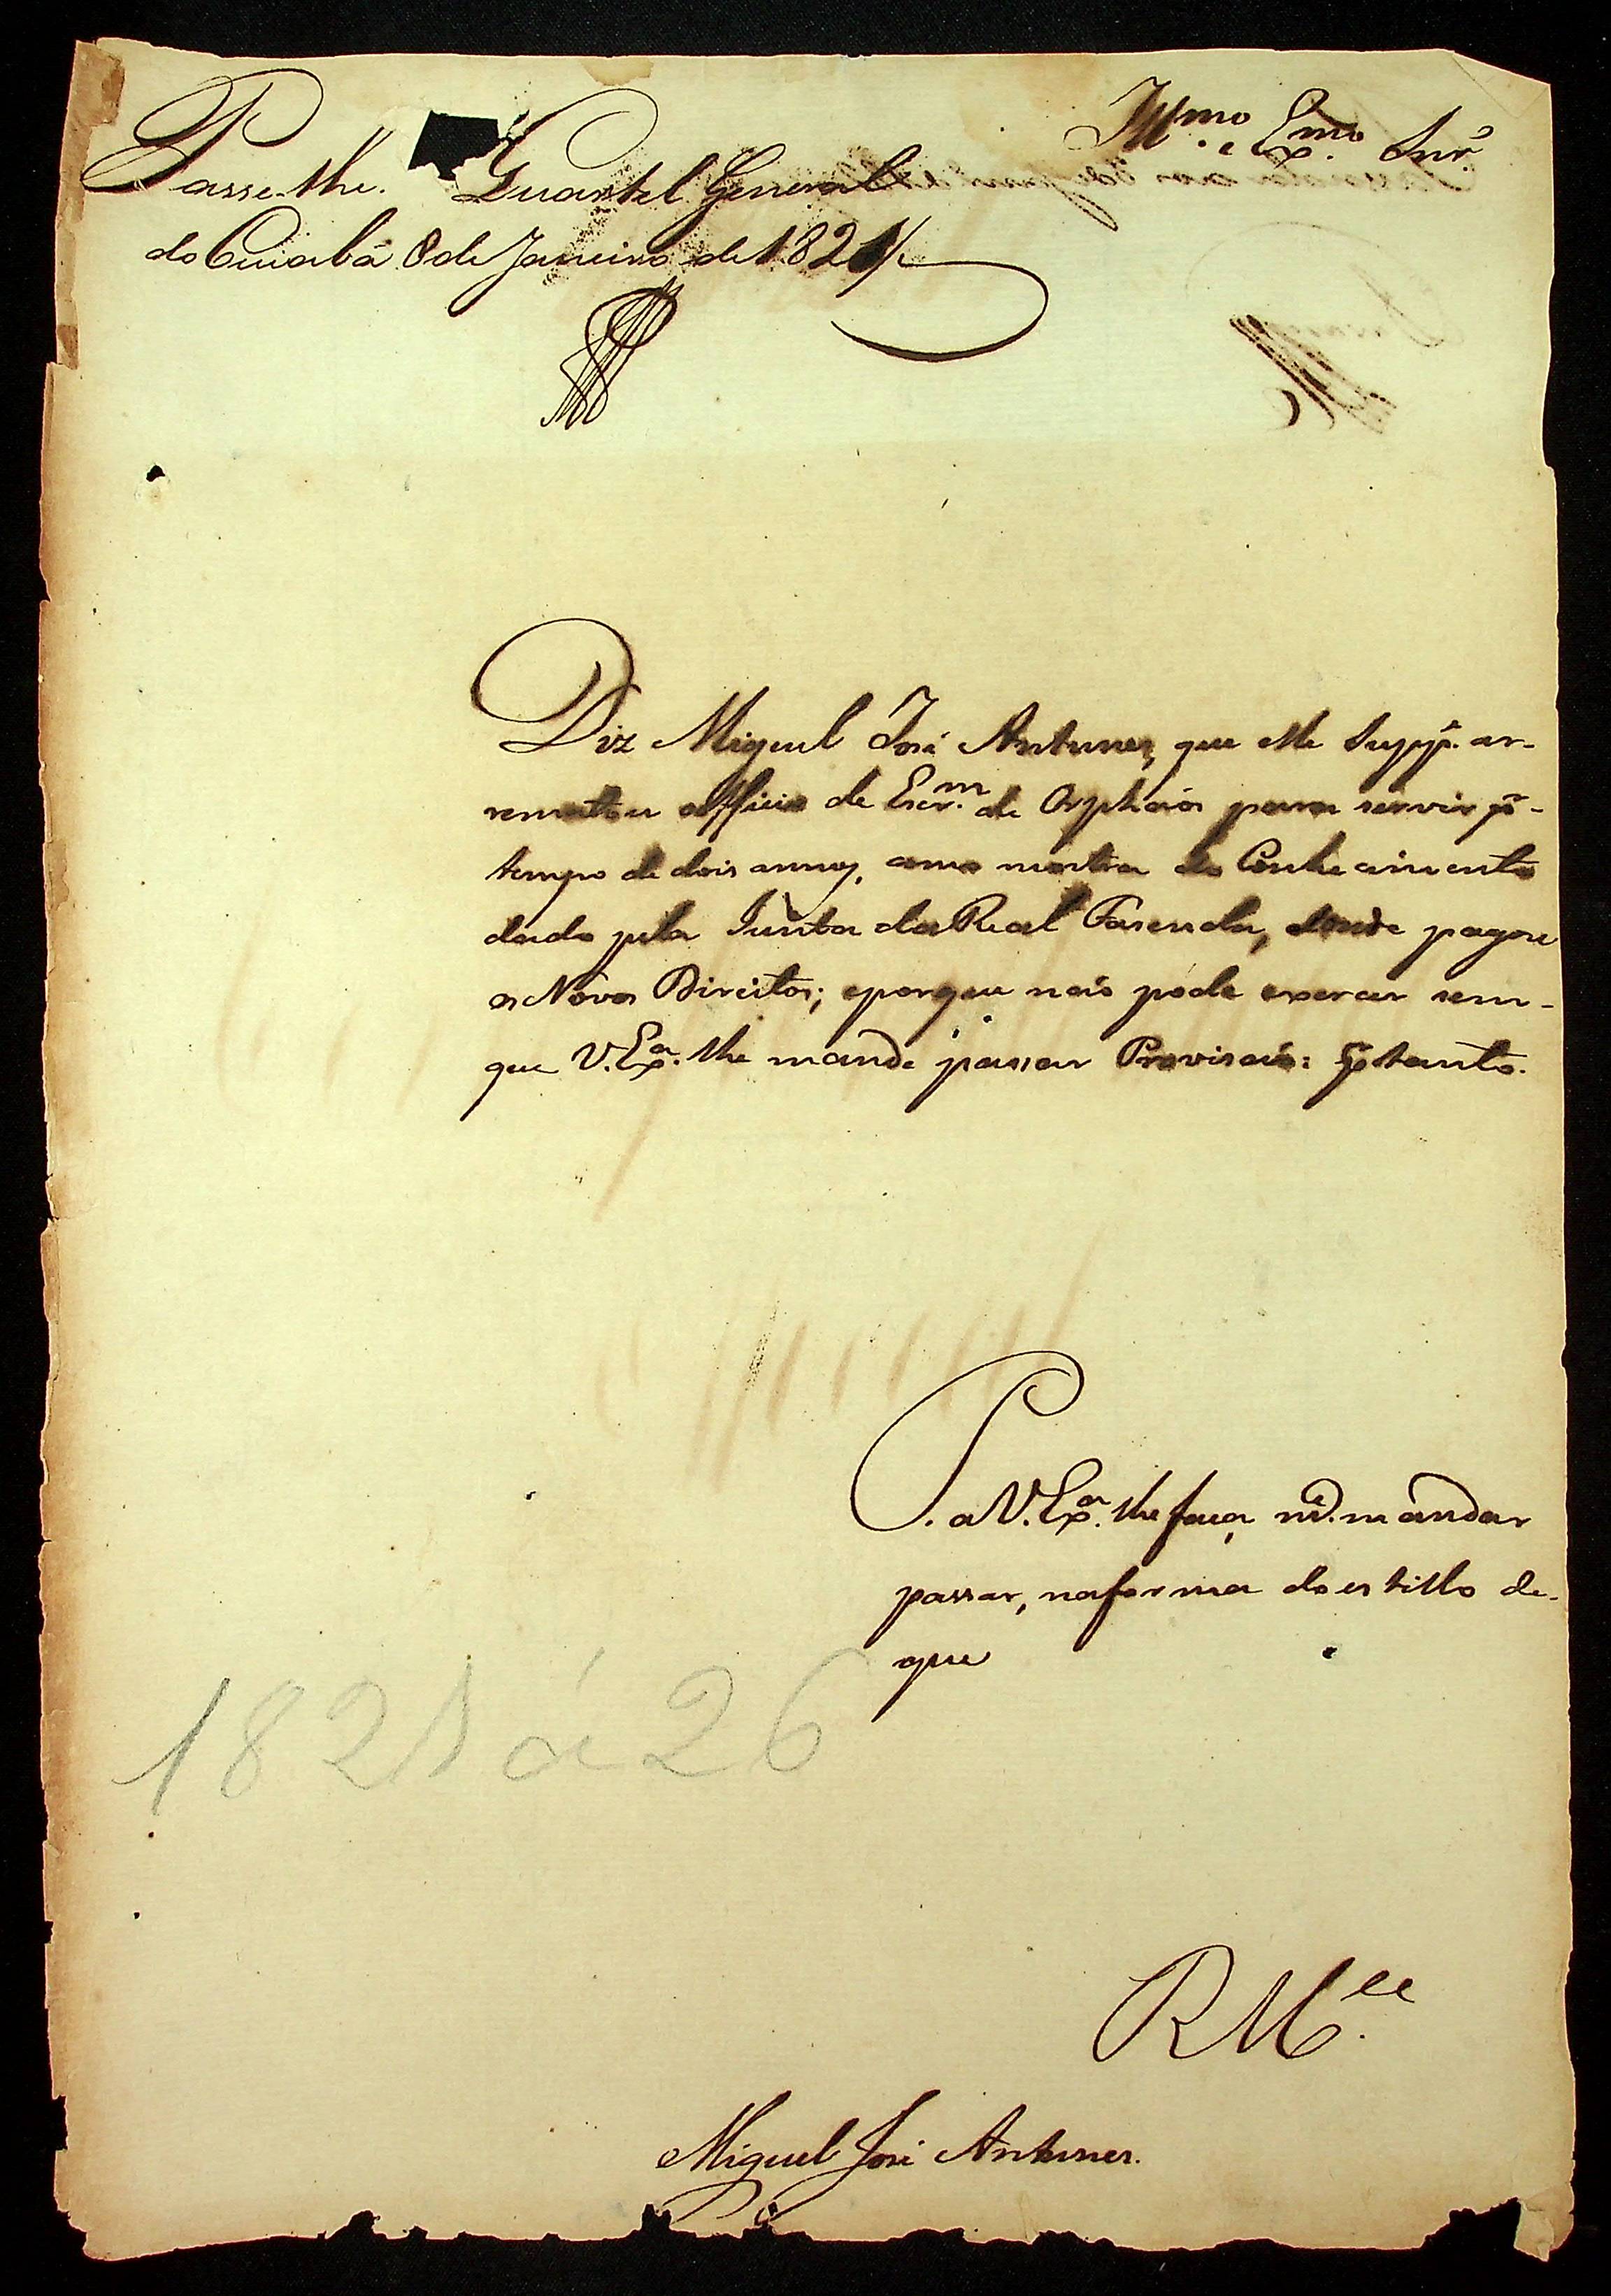 Illmo. e Exmo. Snr̃.
Passe-lhe. Quartel General
do Cuiabá 8 de Janeiro de 1821
Diz Miguel José Antunes, que elle Suppe. ar-
rematou o officio de Escr.m de Orphaós para servir p̃-
tempo de dois annos, como mostra do Conhecimento
dado pela Junta da Real Fasenda, donde pagou
os Novos Direitos; eporque naó pode exercer sem-
que V. Exa. lhe mande passar Provisaó: p̃ tanto.
P. a V. Exa. lhe faça md.e mandar
passar, naforma do estillo de-
que
1821 á 26
R Mce.
Miguel José Antunes.